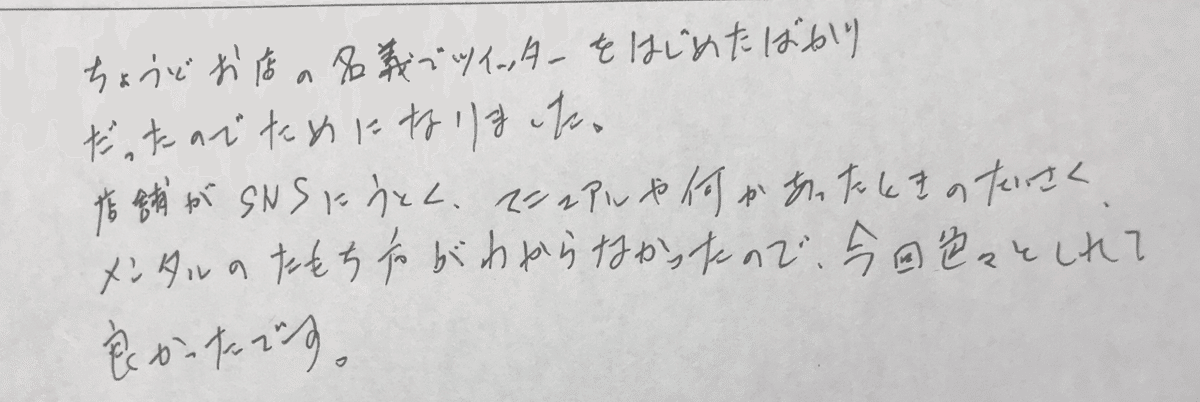 ちょうどお店の名義でツイッターをはじめたばかり
だったのでためになりました。
店舗がSNSにうとく、マニュアルや何かあったときのたいさく、
メンタルのたもち方がわからなかったので、今回色々としれて
良かったです。